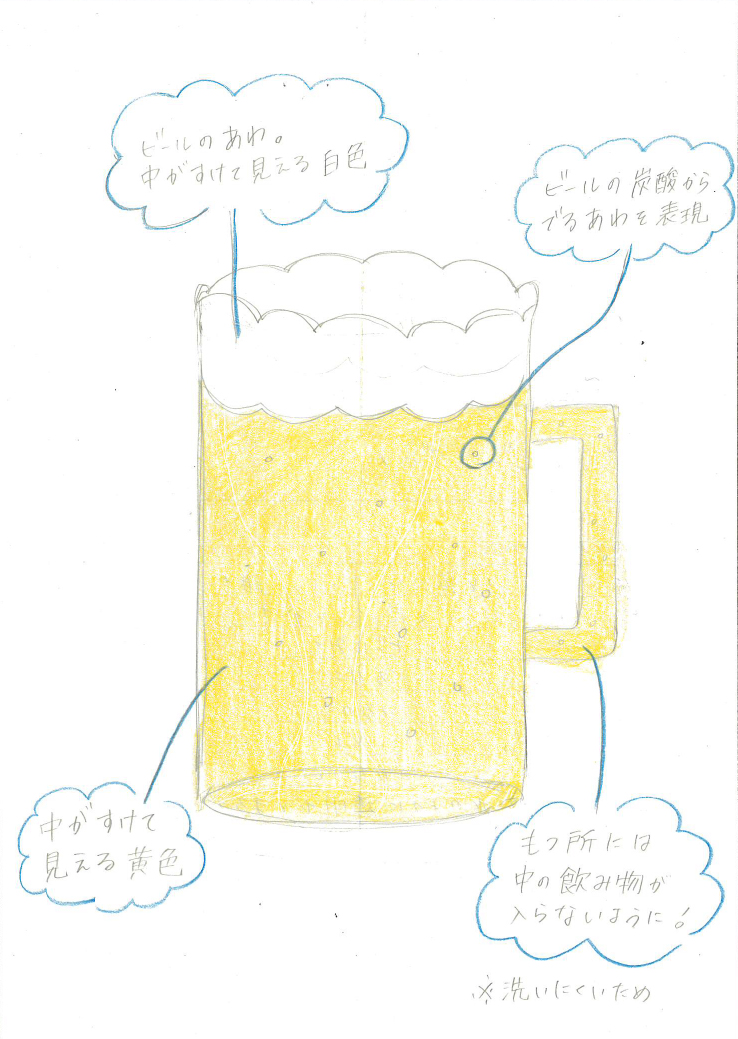 ビールのあわ。
中がすけて見える白色
ビールの炭酸から
でるあわを表現
中がすけて
見える黄色
もつ所には
中の飲み物が
入らないように!
※洗いにくいため